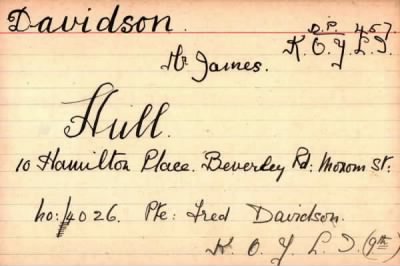 Davidson.
D.P. 457.
K. O. Y. L. I.
Mr James.
Hull.
10 Hamilton Place. Beverley Rd: St:
no: 4026. Pte: Fred Davidson.
K. O. Y. L. I. (9th)